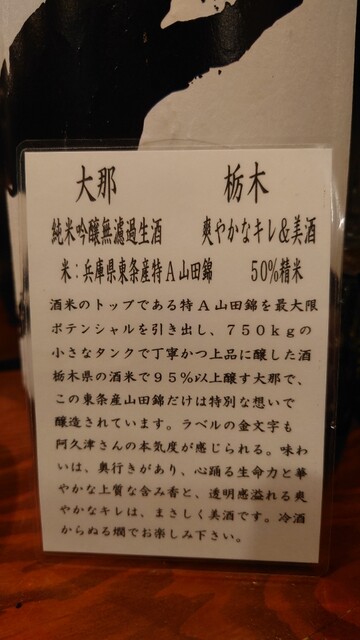 大那 栃木
純米吟醸無濾過生酒 爽やかなキレ&美酒
米:兵庫県東条産特A山田錦 50%精米
酒米のトップである特A山田錦を最大限
ポテンシャルを引き出し、750kgの
小さなタンクで丁寧かつ上品に醸した酒
栃木県の酒米で95%以上醸す大那で、
この東条産山田錦だけは特別な想いで
醸造されています。ラベルの金文字も
阿久津さんの本気度が感じられる。味わ
いは、奥行きがあり、心踊る生命力と華
やかな上質な含み香と、透明感溢れる爽
やかなキレは、まさしく美酒です。冷酒
からぬる燗でお楽しみ下さい。